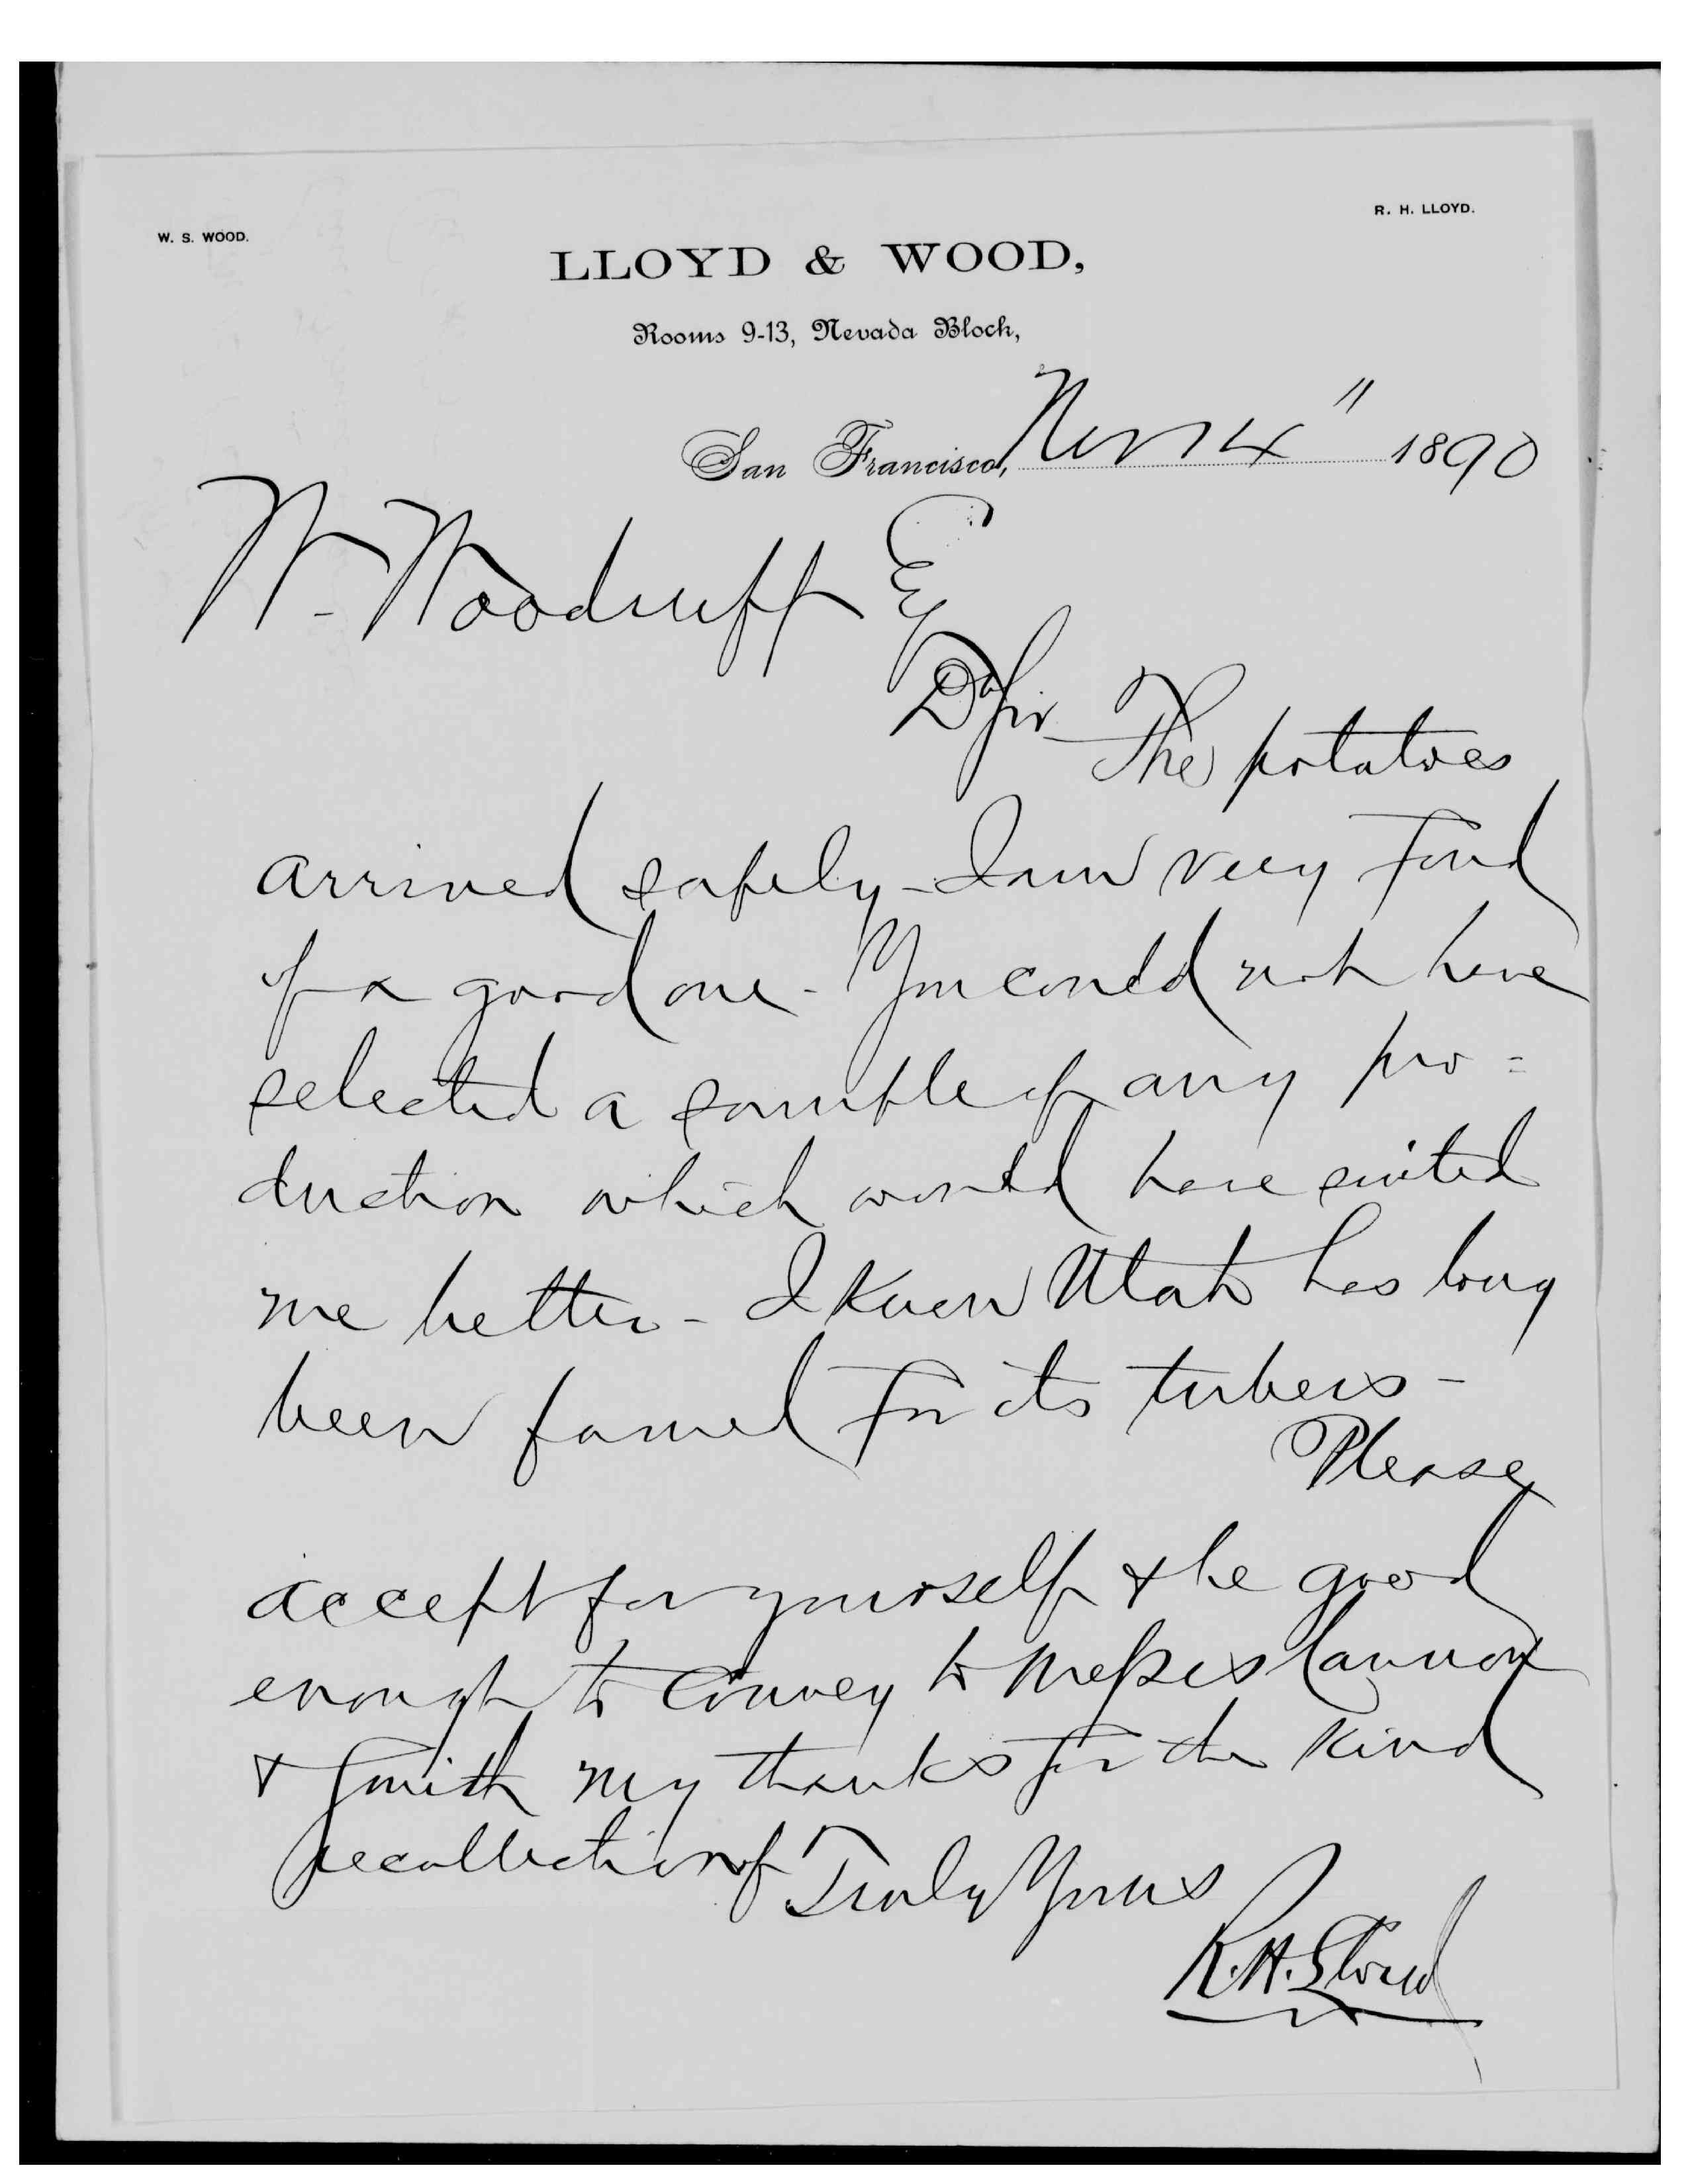 R. H. LLOYD.
W. S. WOOD.
LLOYD & WOOD,
Rooms 9-13, Nevada Block,
San Francisco, Nov 4" 1890
W. Woodruff Esq
D Sir The potatoes
arrived safely - I am very fond
of a good one - You could not have
selected a sample of any pro=
duction which would have suited
me better - I know Utah has long
been famed for its tubers -
Please
accept for yourself & be good
enough to convey to Messrs Cannon
& Smith my thanks for the kind
recollection of Truly Yours
R. H. Lloyd